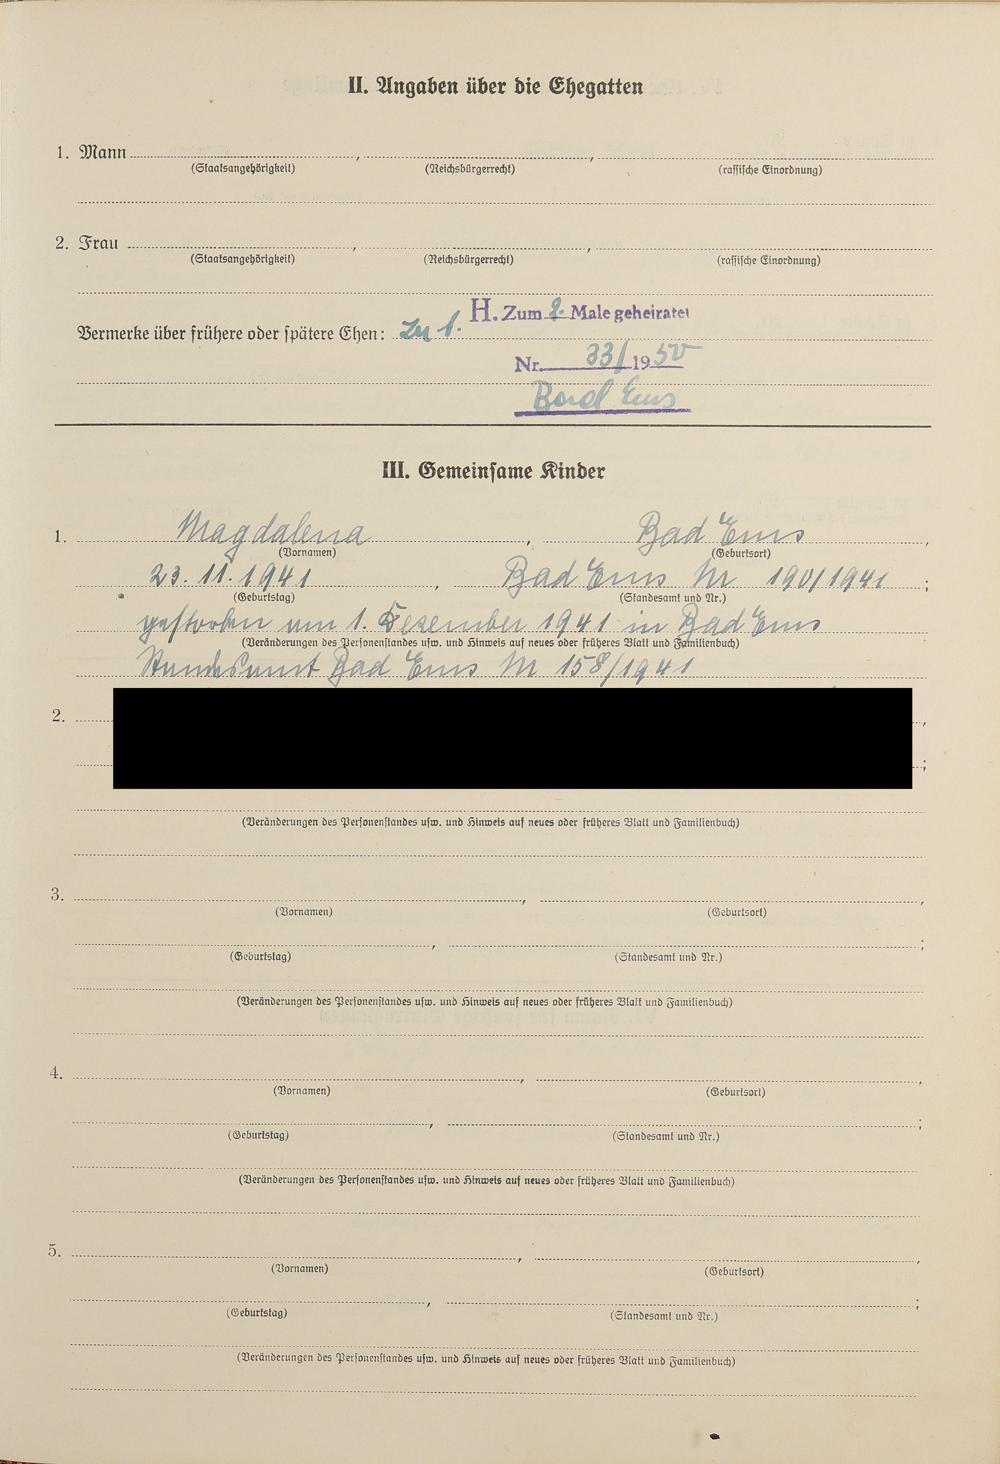 II. Angaben über die Ehegatten
1. Mann , ,
(Staatsangehörigkeit) (Reichsbürgerrecht) (rassische Einordnung)
2. Frau , ,
(Staatsangehörigkeit) (Reichsbürgerrecht) (rassische Einordnung)
H. Zum 2. Male geheiratet
Vermerke über frühere oder spätere Ehen: zu 1.
Nr. 33/1950
Bad Ems
III. Gemeinsame Kinder
1. Magdalena , Bad Ems ,
(Vornamen) (Geburtsort)
23. 11. 1941 , Bad Ems Nr 190/1941 ;
(Geburtstag) (Standesamt und Nr.)
gestorben am 1. Dezember 1941 in Bad Ems
(Veränderungen des Personenstandes usw. und Hinweis auf neues oder früheres Blatt und Familienbuch)
Standesamt Bad Ems Nr 158/1941
2. ,
;
(Veränderungen des Personenstandes usw. und Hinweis auf neues oder früheres Blatt und Familienbuch)
3. , ,
(Vornamen) (Geburtsort)
, ;
(Geburtstag) (Standesamt und Nr.)
(Veränderungen des Personenstandes usw. und Hinweis auf neues oder früheres Blatt und Familienbuch)
4. , ,
(Vornamen) (Geburtsort)
, ;
(Geburtstag) (Standesamt und Nr.)
(Veränderungen des Personenstandes usw. und Hinweis auf neues oder früheres Blatt und Familienbuch)
5. , ,
(Vornamen) (Geburtsort)
, ;
(Geburtstag) (Standesamt und Nr.)
(Veränderungen des Personenstandes usw. und Hinweis auf neues oder früheres Blatt und Familienbuch)